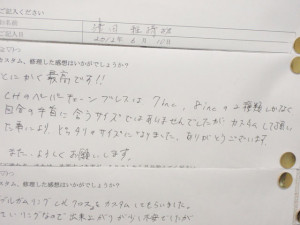 ご記入ください
ご記入日
2012年
カスタム、修理した感想はいかがでしょうか？
とにかく最高です!!
CHのペーパーチェーンブレスは 7inc, 8incの2種類しかなく
自分の手首に合うサイズではありませんでしたが カスタムして頂い
た事により、ピッタリのサイズになりました。ありがとうございます
また、よろしくお願いします。
スタム、修理した感想はいかがでしょうか？
クロスをカスタムしてもらいました。
リングなので出来上がりが少し不安でしたが